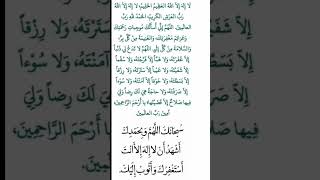 لَا إِلٰهَ إِلَّا اللهُ الْعَظِيمُ الْحَلِيمُ لَا إِلٰهَ إِلَّا اللهُ
رَبُّ الْعَرْشِ الْكَرِيمِ الْحَمْدُ لِلّٰهِ رَبِّ
الْعَالَمِينَ، اللّٰهُمَّ إِنِّي أَسْأَلُكَ مُوجِبَاتِ رَحْمَتِكَ
وَعَزَائِمَ مَغْفِرَتِكَ، وَالْغَنِيمَةَ مِنْ كُلِّ بِرٍّ،
وَالسَّلَامَةَ مِنْ كُلِّ إِثْمٍ اللّٰهُمَّ لَا تَدَعْ لِي ذَنْباً
إِلَّا غَفَرْتَهُ، وَلَا هَمّاً إِلَّا فَرَّجْتَهُ، وَلَا سُقْماً
إِلَّا شَفَيْتَهُ، وَلَا عَيْباً إِلَّا سَتَرْتَهُ، وَلَا رِزْقاً
إِلَّا بَسَطْتَهُ، وَلَا خَوْفاً إِلَّا آمَنْتَهُ، وَلَا سُوْءاً
إِلَّا صَرَفْتَهُ، وَلَا حَاجَةً هِيَ لَكَ رِضاً وَلِيَ
فِيهَا صَلَاحٌ إِلَّا قَضَيْتَهَا، يَا أَرْحَمَ الرَّاحِمِينَ،
آمِينَ رَبَّ الْعَالَمِينَ.
سُبْحَانَكَ اللّٰهُمَّ وَبِحَمْدِكَ
أَشْهَدُ أَنْ لَا إِلٰهَ إِلَّا أَنْتَ
أَسْتَغْفِرُكَ وَأَتُوبُ إِلَيْكَ.